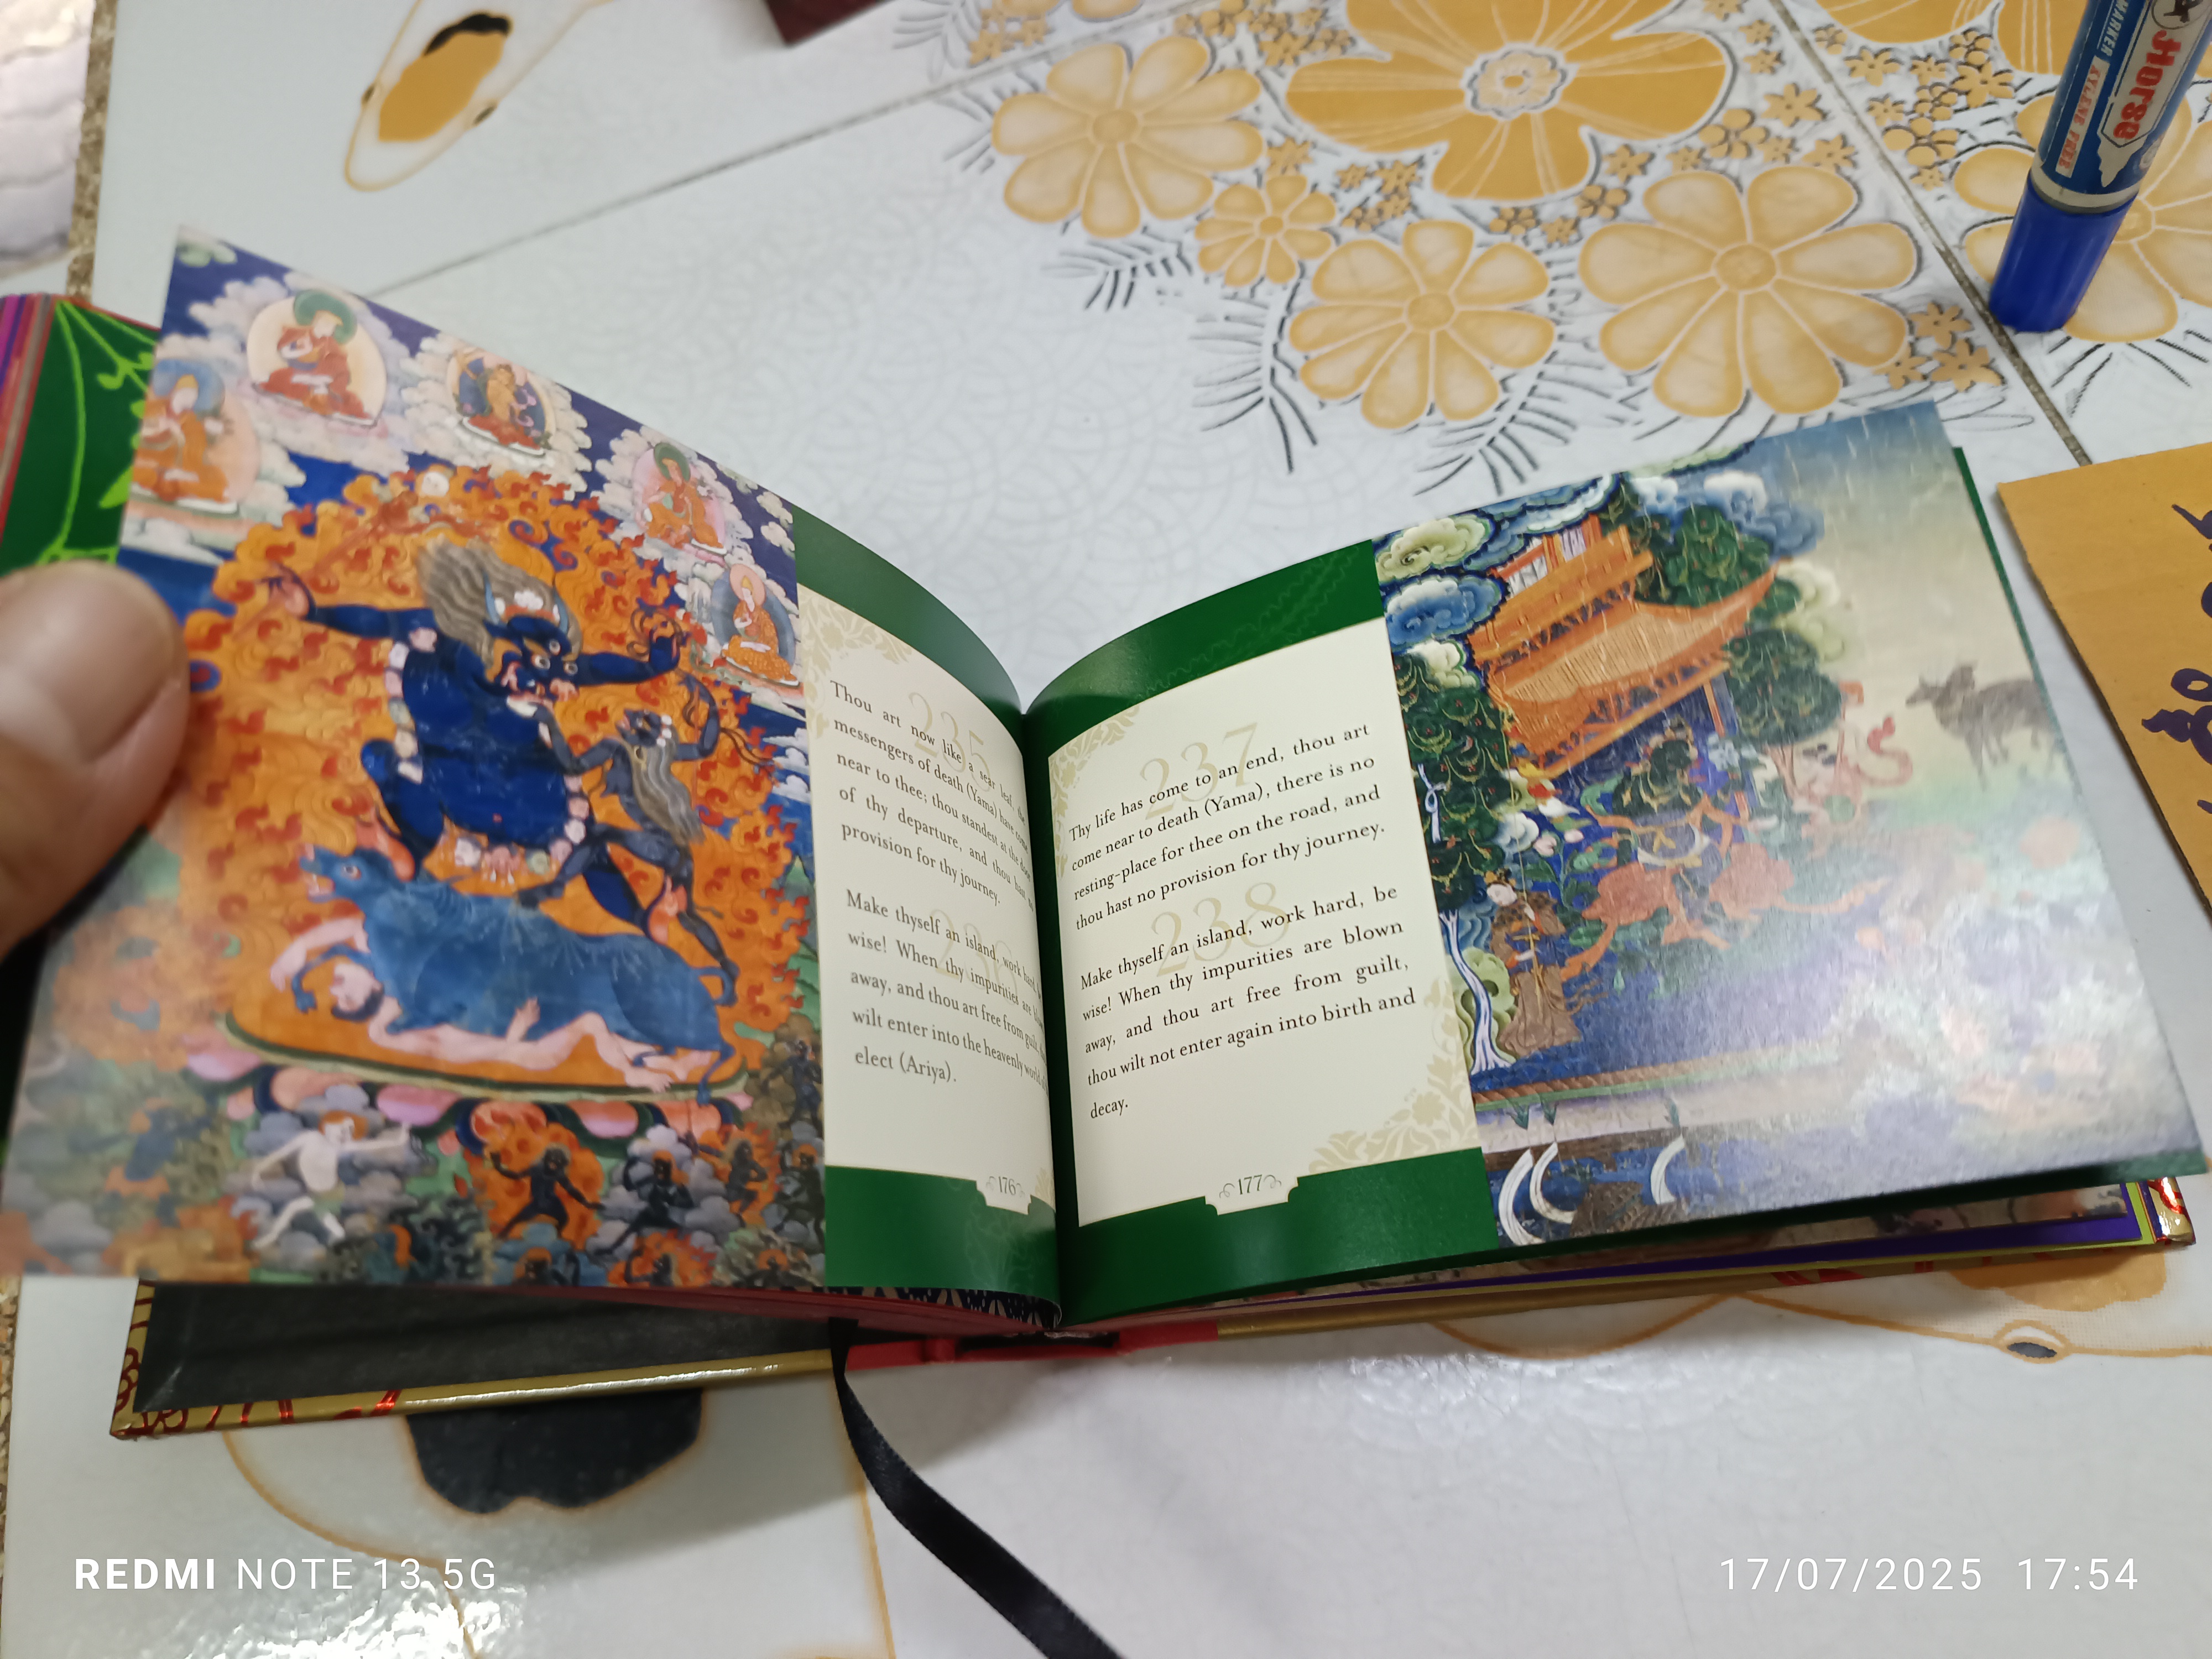 MARKER
Horse
XYLENE FREE
235
Thou art now like a sear leaf, the
messengers of death (Yama) have come
near to thee; thou standest at the door
of thy departure, and thou hast no
provision for thy journey.
Make thyself an island, work hard,
wise! When thy impurities are blown
away, and thou art free from guilt,
wilt enter into the heavenly world
elect (Ariya).
176
237
Thy life has come to an end, thou art
come near to death (Yama), there is no
resting-place for thee on the road, and
thou hast no provision for thy journey.
238
Make thyself an island, work hard, be
wise! When thy impurities are blown
away, and thou art free from guilt,
thou wilt not enter again into birth and
decay.
177
REDMI NOTE 13 5G
17/07/2025 17:54